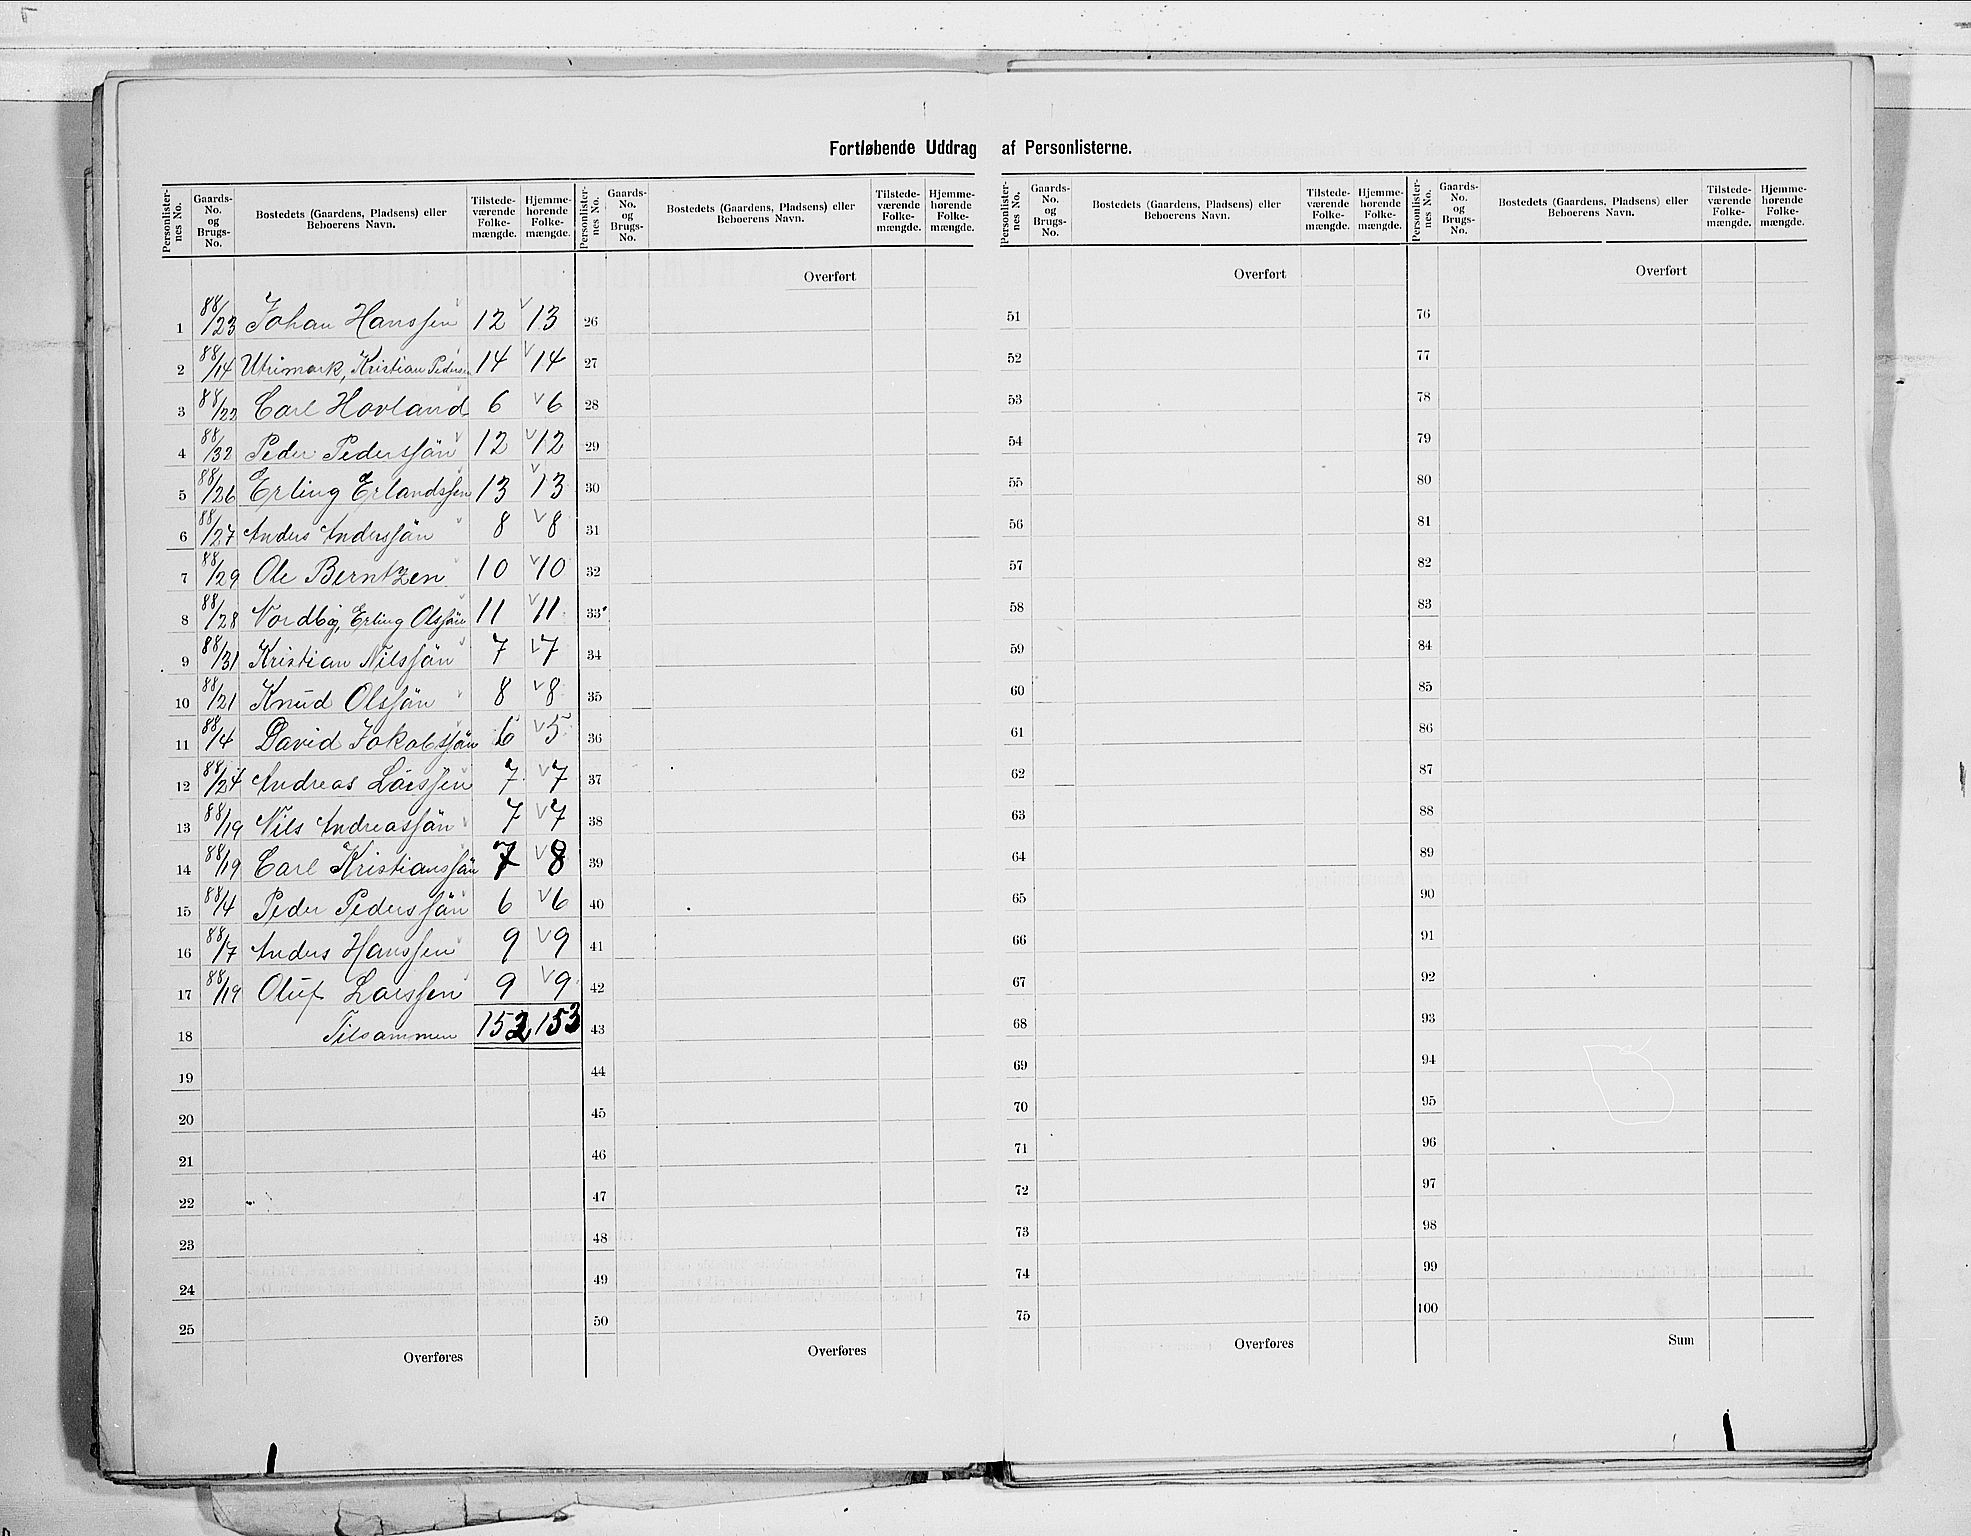 Fortløbende Uddrag af Personlisterne.
Personlisternes No. Gaards-No. og Brugs-No. Bostedets (Gaardens, Pladsens) eller Beboerens Navn. Tilstedeværende Folkemængde. Hjemmehørende Folkemængde.
1 88/23 Johan Hanssen 12 13
2 88/14 Utrimark, Kristian Pedersen 14 14
3 88/22 Carl Hovland 6 6
4 88/32 Peder Pederssön 12 12
5 88/26 Erling Erlandssen 13 13
6 88/27 Anders Anderssön 8 8
7 88/29 Ole Berntzen 10 10
8 88/28 Nordbö, Erling Olssön 11 11
9 88/31 Kristian Nilssön 7 7
10 88/21 Knud Olssön 8 8
11 88/4 David Jokobssön 6 5
12 88/24 Andreas Larssen 7 7
13 88/19 Nils Andreassön 7 7
14 88/19 Carl Kristianssön 7 8
15 88/4 Peder Pederssön 6 6
16 88/7 Anders Hanssen 9 9
17 88/19 Oluf Larssen 9 9
18 Tilsammen 152 153
19
20
21
22
23
24
25
Overføres
Personlisternes No. Gaards-No. og Brugs-No. Bostedets (Gaardens, Pladsens) eller Beboerens Navn. Tilstedeværende Folkemængde. Hjemmehørende Folkemængde.
Overført
26
27
28
29
30
31
32
33
34
35
36
37
38
39
40
41
42
43
44
45
46
47
48
49
50
Overføres
Personlisternes No. Gaards-No. og Brugs-No. Bostedets (Gaardens, Pladsens) eller Beboerens Navn. Tilstedeværende Folkemængde. Hjemmehørende Folkemængde.
Overført
51
52
53
54
55
56
57
58
59
60
61
62
63
64
65
66
67
68
69
70
71
72
73
74
75
Overføres
Personlisternes No. Gaards-No. og Brugs-No. Bostedets (Gaardens, Pladsens) eller Beboerens Navn. Tilstedeværende Folkemængde. Hjemmehørende Folkemængde.
Overført
76
77
78
79
80
81
82
83
84
85
86
87
88
89
90
91
92
93
94
95
96
97
98
99
100
Sum